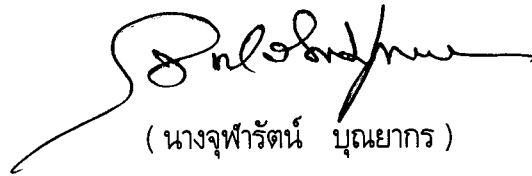 ( นางจุฬารัตน์ บุณยากร )